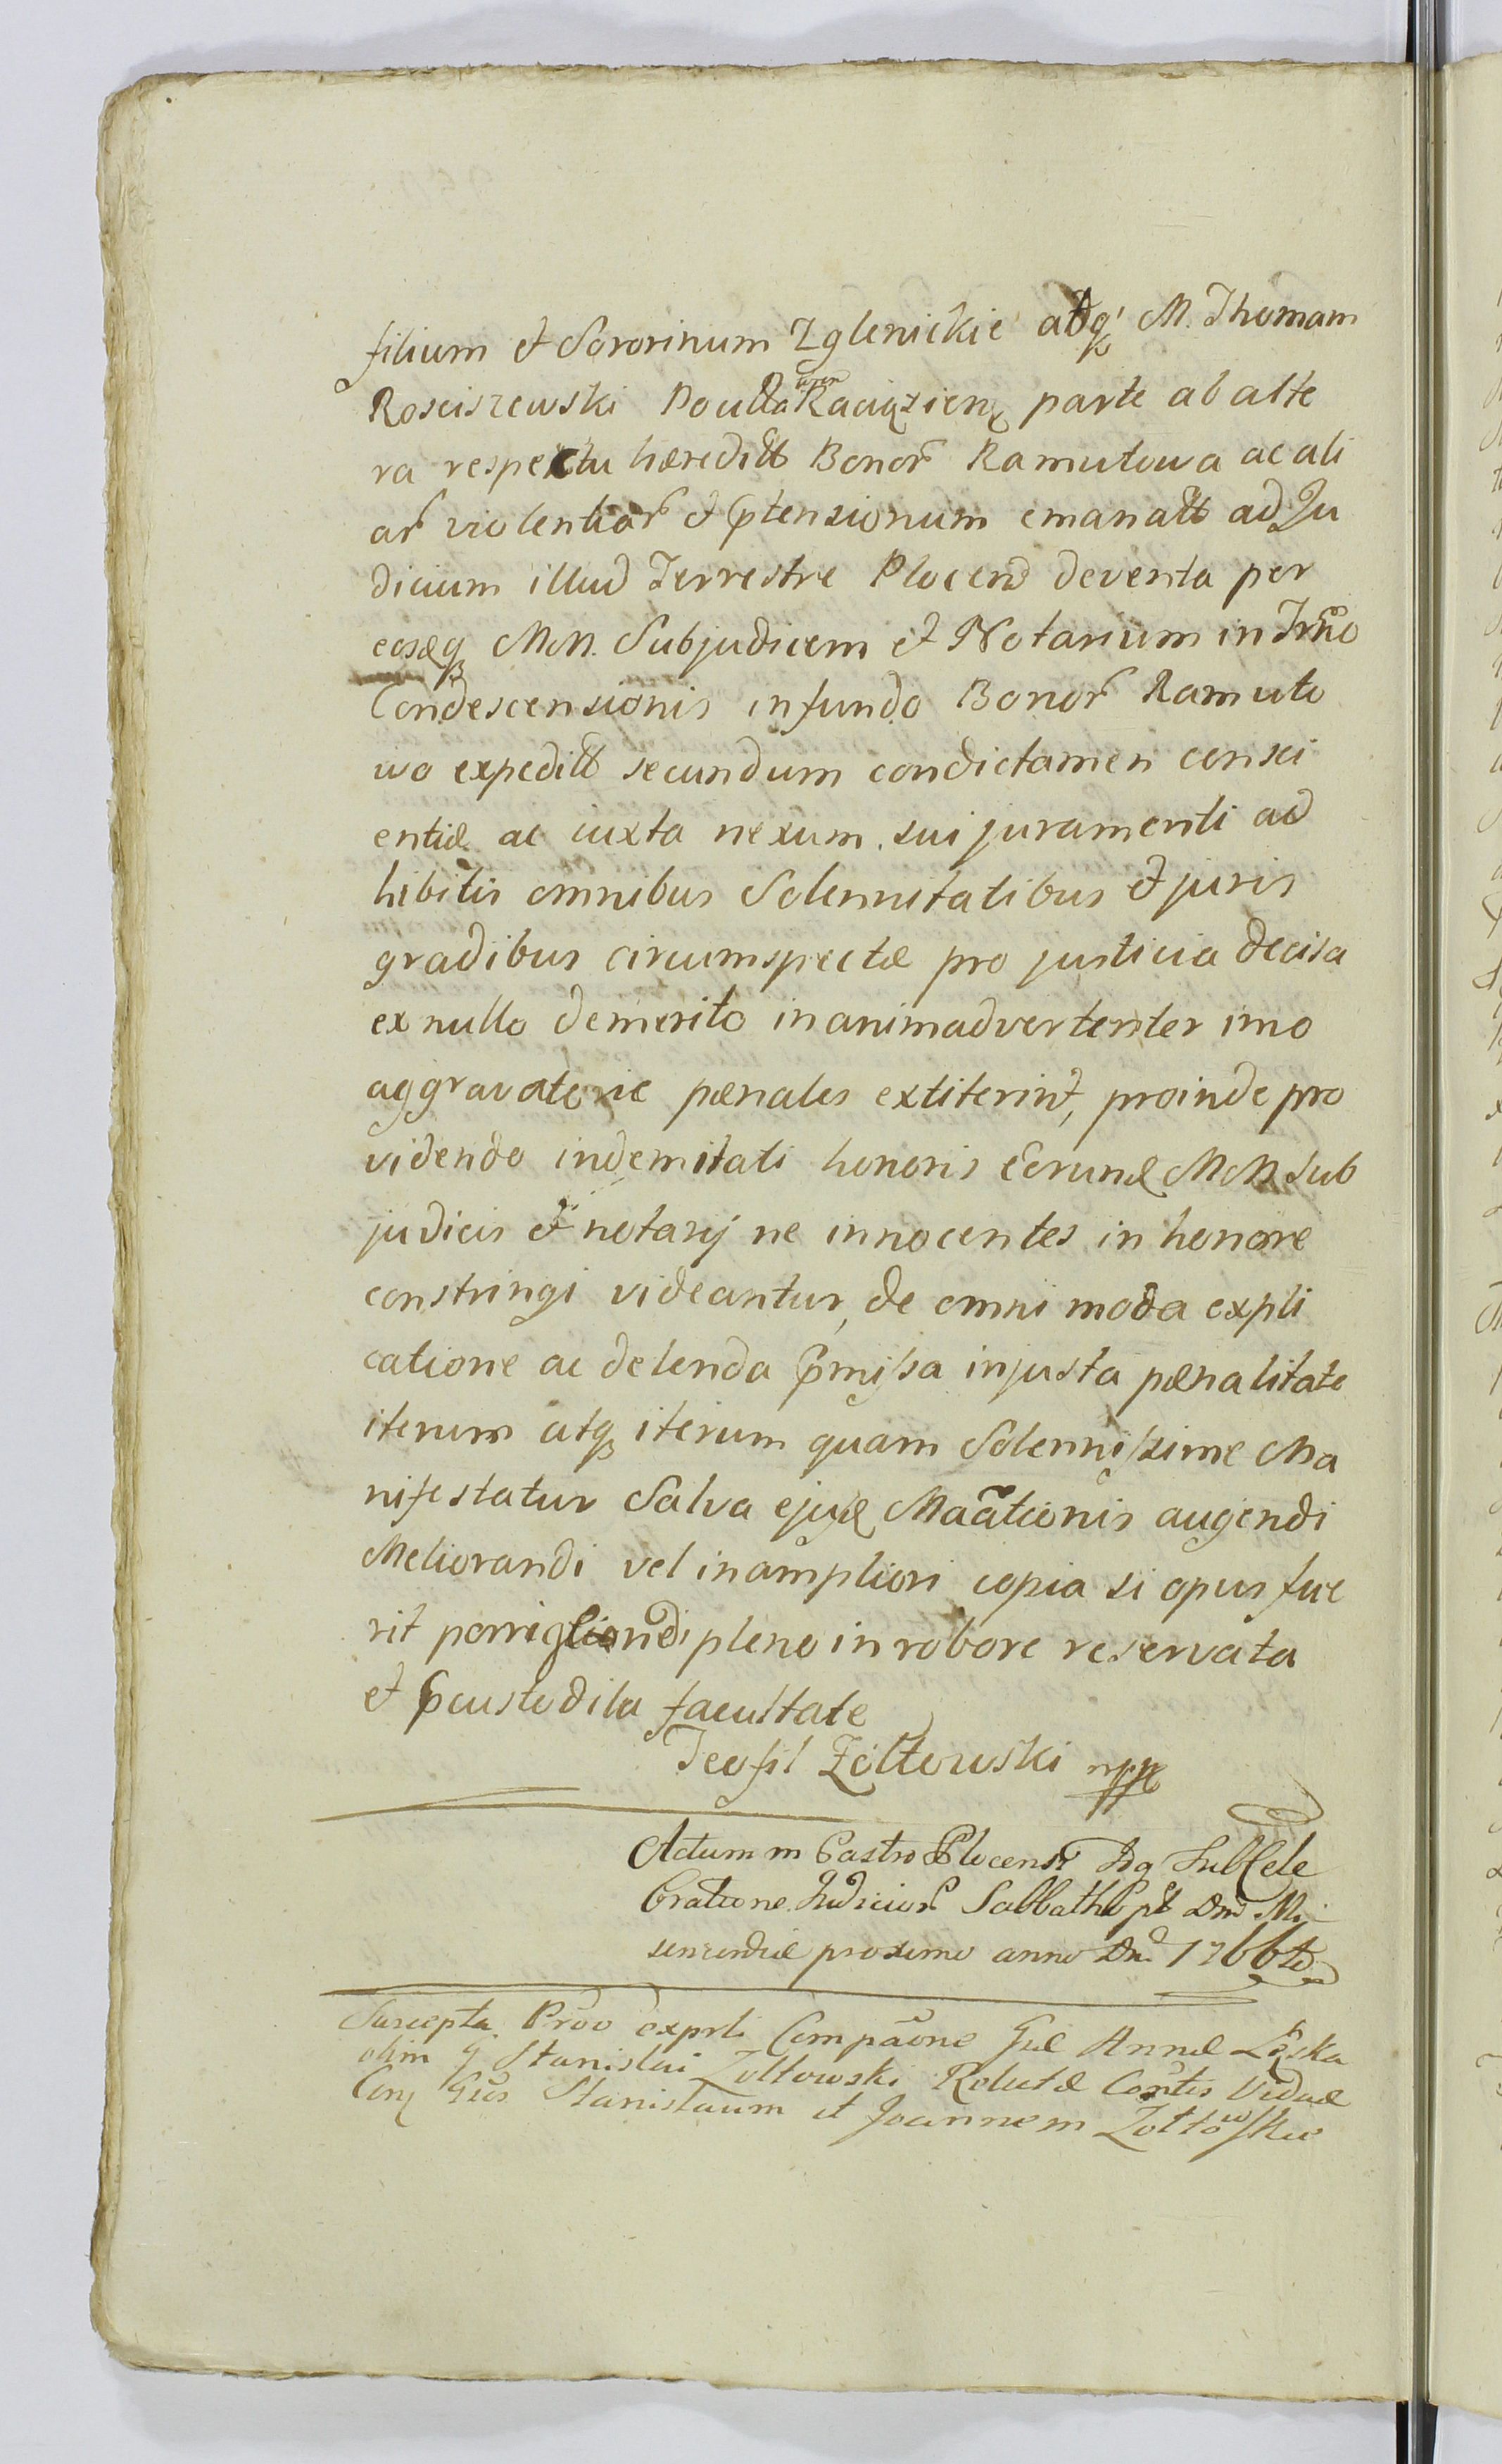 filium et Sororinum Zglenickie atq M. Thomam
Rosciszewski Pocilla Raciązien parte ab alte
ra respectu hæreditt Bonor Ramutowa ac ali
ar violentiar et ptensionum emanatt ad Ju
dicium illud Terrestre Plocen deventa per
eosdq MM. Subjudicem et Notarium in Trno
Condescensionis in fundo Bonor Ramuto
wo expeditt secundum condictamen consci
entiæ ac iuxta nexum sui juramenti ad
hibitis omnibus Solennitatibus et juris
gradibus circumspectæ pro justicia decisa
ex nullo demerito inanimadvertenter imo
aggravatorie pænales extiterint, proinde pro
videndo indemitati honoris Eorund MM Sub
judicis et notarij ne innocentes in honore
constringi videantur, de omni moda expli
catione ac delenda pmissa injusta pænalitate
iterum atq iterum quam Solennissime Ma
nifestatur Salva ejusd Maãtionis augendi
Meliorandi vel in ampliori copia si opus fue
rit porrigendi pleno in robore reservata
et pcustodita facultate
Teofil Żółtowski mpp
Actum in Castro Plocensi Fig Sub Cele
bratione Judicior Sabbatho pt Dnd Mi
sericordiæ proximo anno Dni 1766to
Suscepta Proo exprli Compãone Gæ Annæ Łęska
olim G Stanislai Zoltowski Relictæ Contis Viduæ
Con Gos Stanislaum et Joannem Żołtowskie